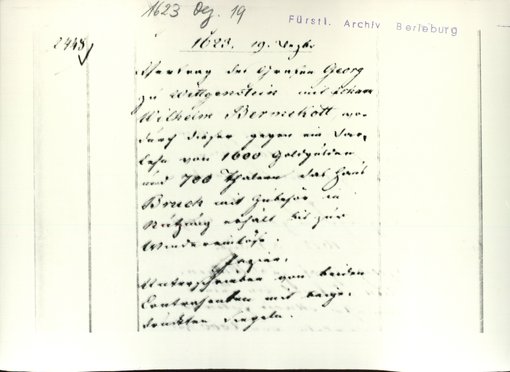 1623 Dez. 19
Fürstl. Archiv Berleburg
2448
1623. 19. Dezbr
Vertrag des Grafen Georg
zu Wittgenstein mit Johann
Wilhelm Bernchott wo-
durch dieser gegen ein Dar-
lehn von 1600 Goldgulden
und 700 Thalern das Haus
Bruch mit Zubehör in
Nutzung erhält bis zur
Wiedereinlöse.
Papier.
Unterschrieben von beiden
Contrahenten mit beige-
druckten Siegeln.